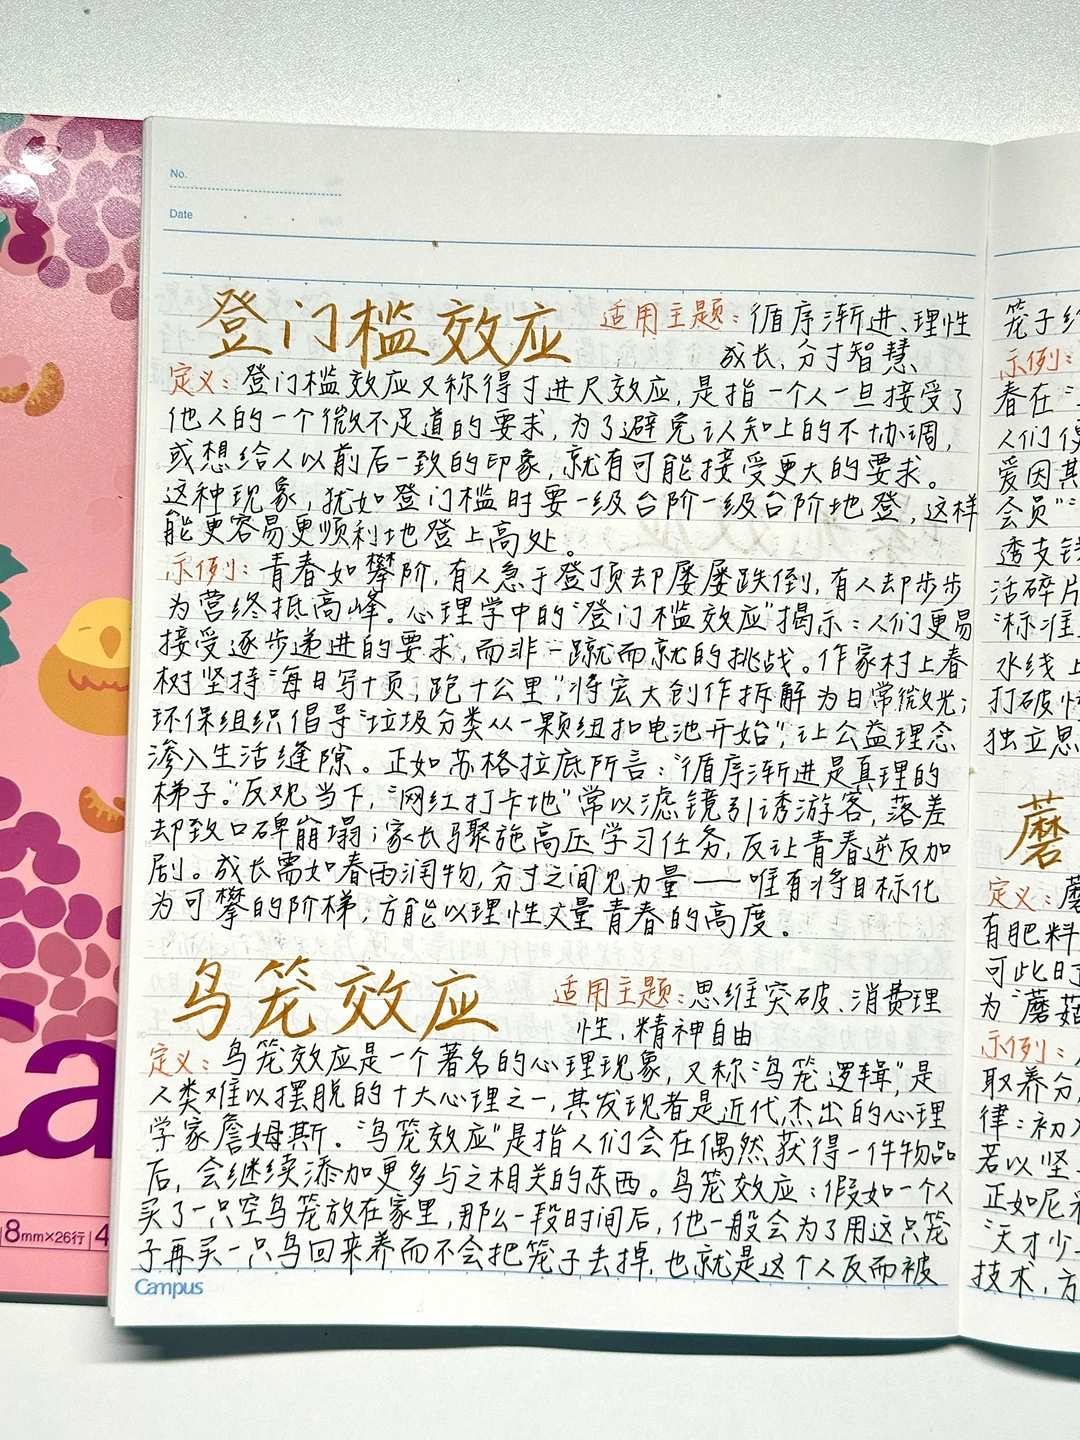 No.
Date
登门槛效应
适用主题:循序渐进、理性
成长、分寸智慧
定义:登门槛效应又称得寸进尺效应,是指一个人一旦接受了
他人的一个微不足道的要求,为了避免认知上的不协调,
或想给人以前后一致的印象,就有可能接受更大的要求。
这种现象,犹如登门槛时要一级台阶一级台阶地登,这样
能更容易更顺利地登上高处。
示例:青春如攀阶,有人急于登顶却屡屡跌倒,有人却步步
为营终抵高峰。心理学中的“登门槛效应”揭示:人们更易
接受逐步递进的要求,而非一蹴而就的挑战。作家村上春
树坚持“每日写十页,跑十公里”,将宏大创作拆解为日常微光;
环保组织倡导“垃圾分类从一颗纽扣电池开始”,让公益理念
渗入生活缝隙。正如苏格拉底所言:“循序渐进是真理的
梯子。”反观当下,“网红打卡地”常以滤镜引诱游客,落差
却致口碑崩塌;家长骤施高压学习任务,反让青春逆反加
剧。成长需如春雨润物,分寸之间见力量——唯有将目标化
为可攀的阶梯,方能以理性丈量青春的高度。
鸟笼效应
适用主题:思维突破、消费理
性,精神自由
定义:鸟笼效应是一个著名的心理现象,又称“鸟笼逻辑”,是
人类难以摆脱的十大心理之一,其发现者是近代杰出的心理
学家詹姆斯。“鸟笼效应”是指人们会在偶然获得一件物品
后,会继续添加更多与之相关的东西。鸟笼效应:假如一个人
买了一只空鸟笼放在家里,那么一段时间后,他一般会为了用这只笼
子再买一只鸟回来养而不会把笼子丢掉,也就是这个人反而被
Campus
笼子
示例:
春在“
人们
爱因其
会员”
透支钱
活碎片
“标准
水线上
打破
独立思
蘑
定义:蘑
有肥料
可此时
为“蘑菇
示例:
取养分,
律:初入
若以坚
正如尼采
“天才少
技术,方
a
8mm×26行 4